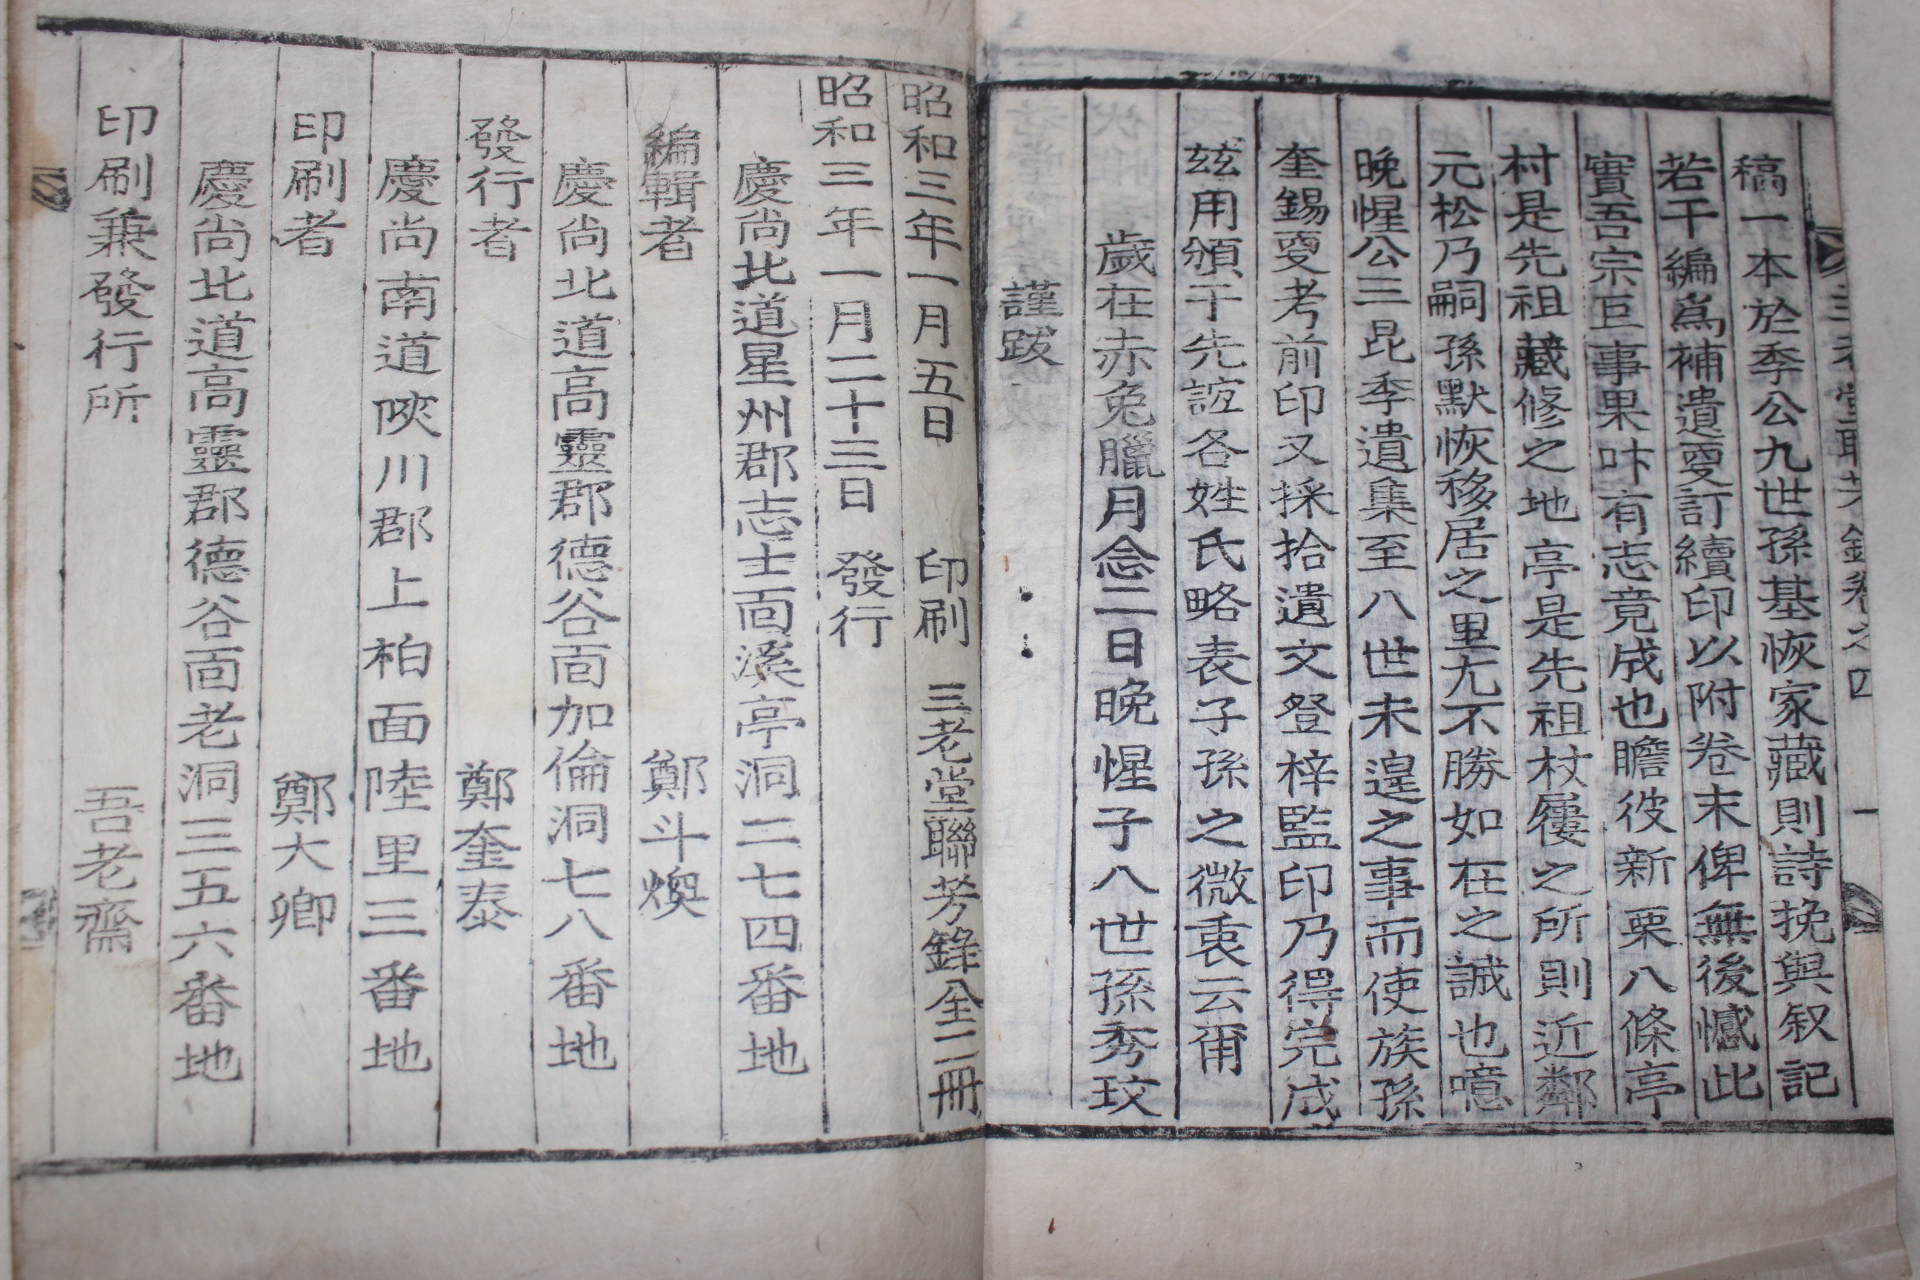 三老堂聯芳錄卷之四
稿一本於季公九世孫基恢家藏則詩挽與叙記
若干編爲補遺更訂續印以附卷末俾無後憾此
實吾宗巨事果叶有志竟成也瞻彼新粟八條亭
村是先祖藏修之地亭是先祖杖屨之所則近鄰
元松乃嗣孫默恢移居之里尤不勝如在之誠也噫
晩惺公三昆季遺集至八世未遑之事而使族孫
奎錫更考前印又採拾遺文登梓監印乃得完成
玆用頒于先誼各姓氏略表子孫之微衷云爾
歲在赤兔臘月念二日晩惺子八世孫秀玟
謹跋
昭和三年一月五日 印刷 三老堂聯芳錄全二冊
昭和三年一月二十三日 發行
慶尙北道星州郡志士面溪亭洞二七四番地
編輯者 鄭斗煥
慶尙北道高靈郡德谷面加倫洞七八番地
發行者 鄭奎泰
慶尙南道陜川郡上柏面陸里三番地
印刷者 鄭大卿
慶尙北道高靈郡德谷面老洞三五六番地
印刷兼發行所 吾老齋